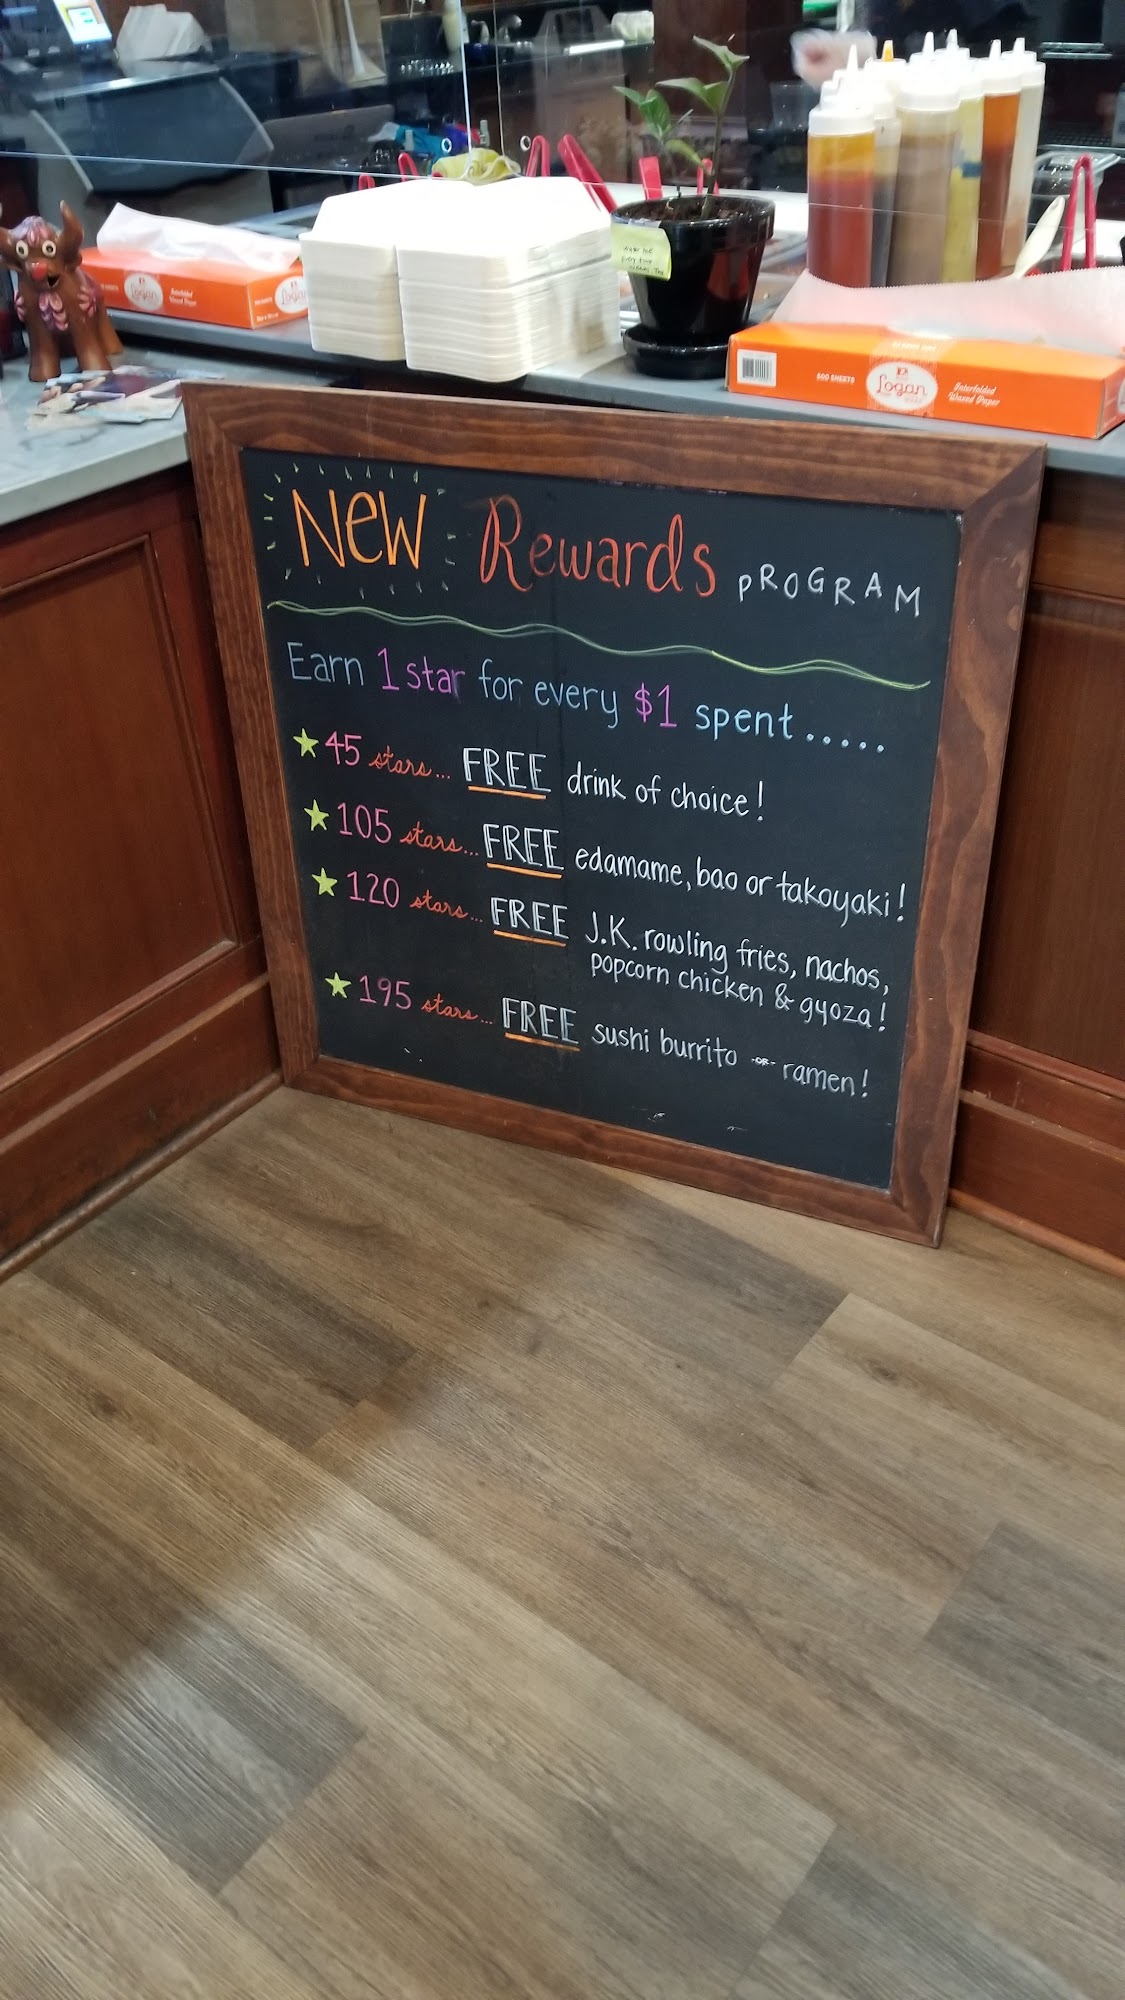 NEW Rewards PROGRAM
Earn 1 star for every $1 spent.....
45 stars... FREE drink of choice!
105 stars... FREE edamame, bao or takoyaki!
120 stars... FREE J.K. rowling fries, nachos,
popcorn chicken & gyoza!
195 stars... FREE sushi burrito -OR- ramen!
Logan
Interfolded
Waxed Paper
Logan
500 SHEETS
Logan
Interfolded
Waxed Paper